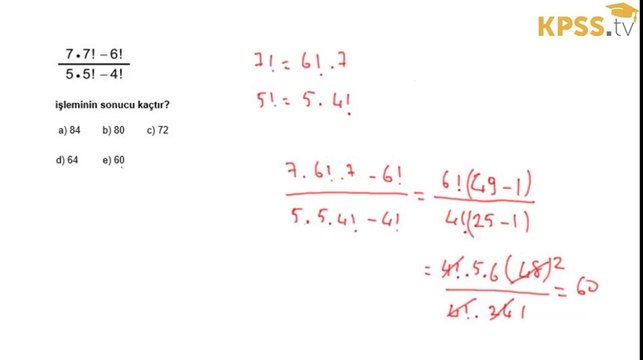 KPSS.tv
7•7! – 6!
5•5! – 4!
işleminin sonucu kaçtır?
a) 84 b) 80 c) 72
d) 64 e) 60
7! = 6! . 7
5! = 5 . 4!
7 . 6! . 7 - 6!
5 . 5 . 4! - 4!
= 6! (49 - 1)
4! (25 - 1)
= 4! . 5 . 6 (48) 2
4! . 24 1
= 60